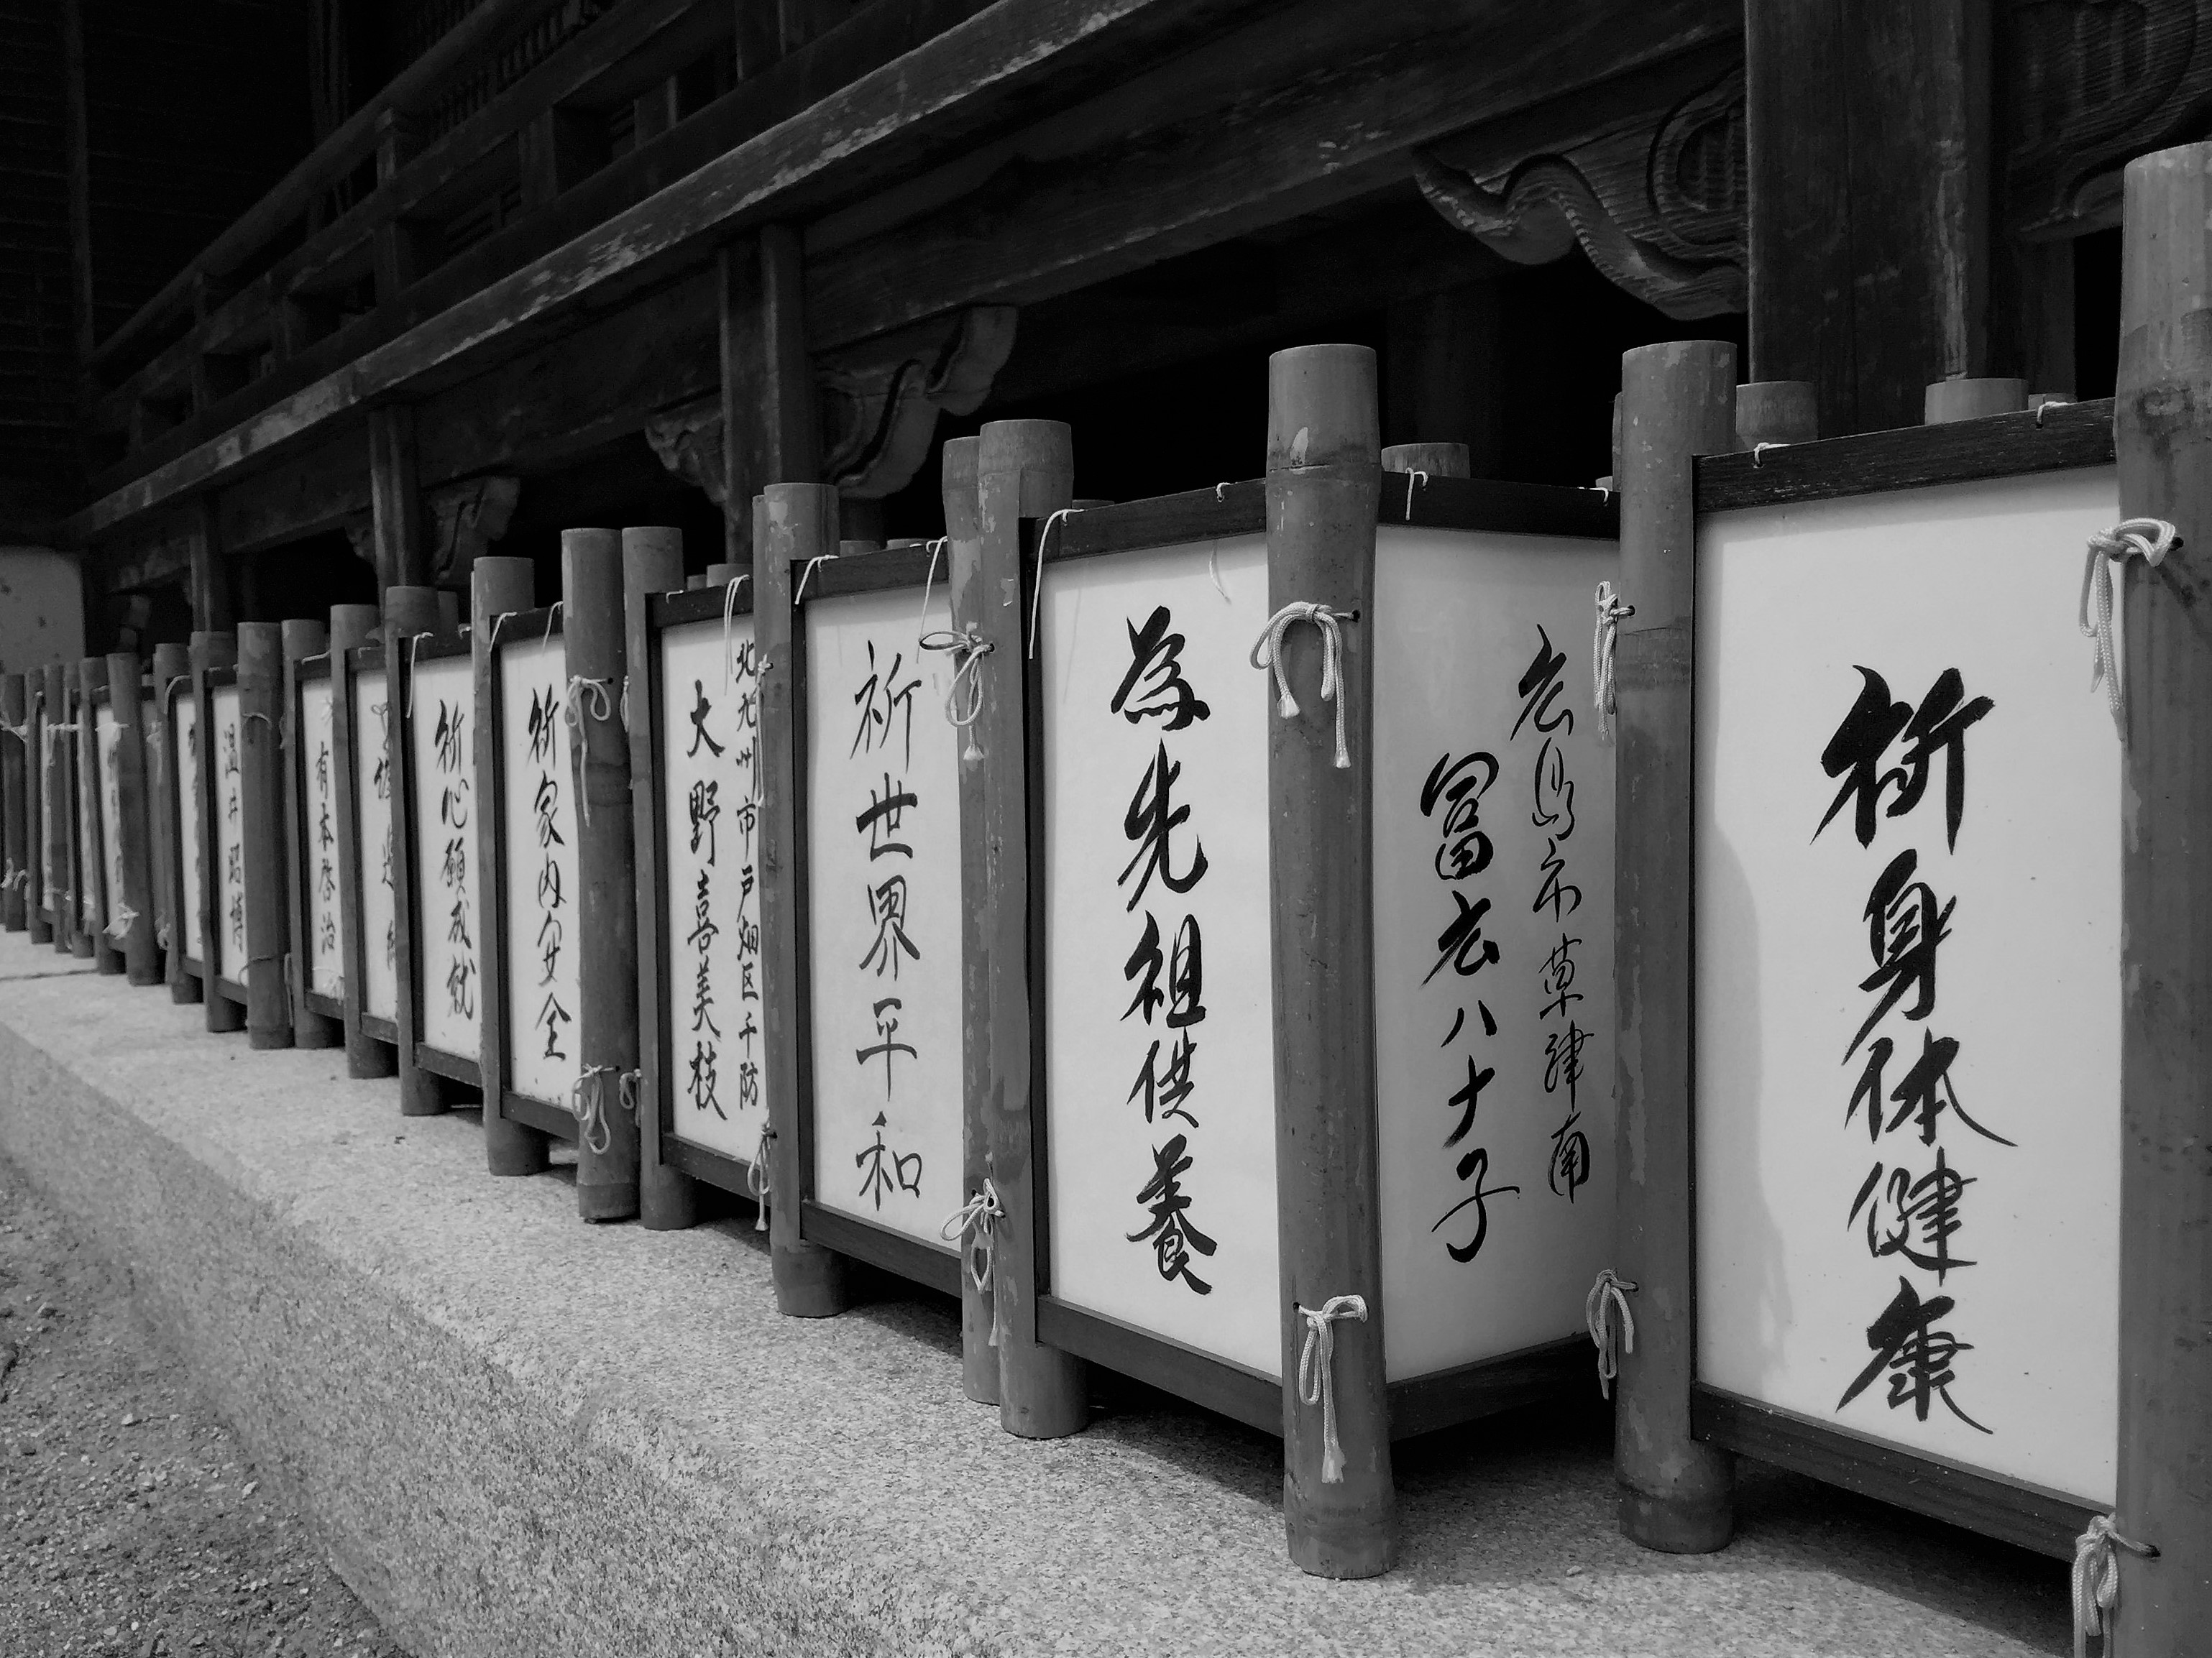 祈身体健康
広島市草津南
冨広八十子
為先祖供養
祈世界平和
北九州市戸畑区千防
大野喜美枝
祈家内安全
祈心願成就
有本啓治